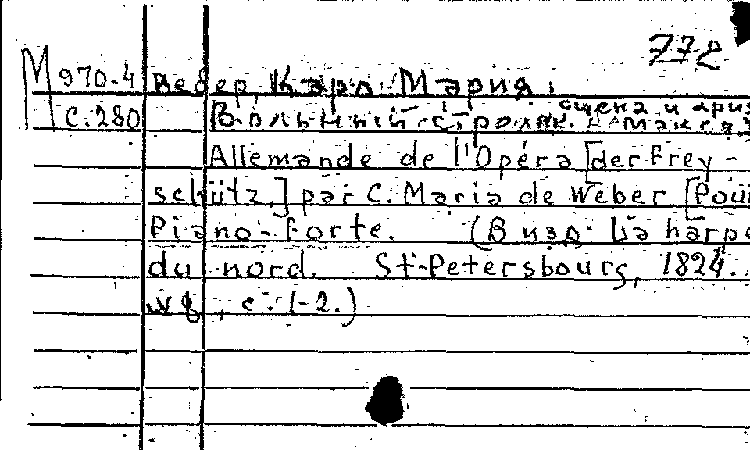 772
М 970-4 Вебер, Карл Мария.
с. 280 Вольный стрелок. сцена и ария
Allemande de l'Opéra [der Frey-
schütz.] par C. Maria de Weber [Pour
Piano-Forte. (В изд. La harpe
du nord. St-Petersbourg, 1824.
, с. 1-2.)